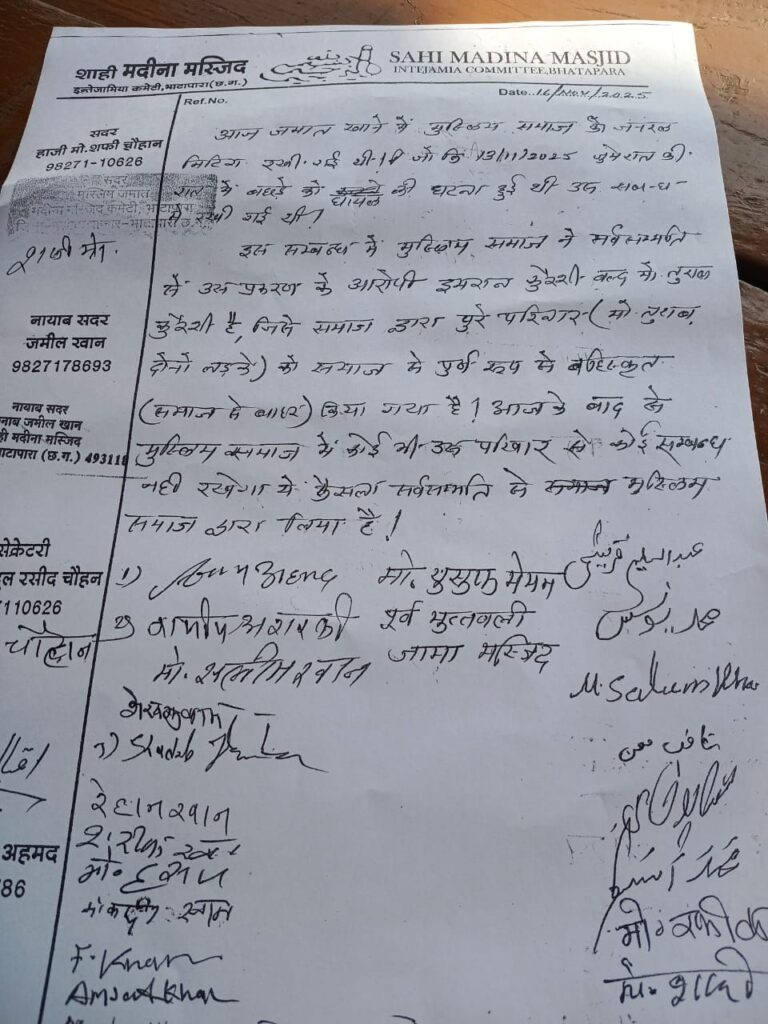 शाही मदीना मस्जिद
इन्तेजामिया कमेटी, भाटापारा (छ.ग.)
SAHI MADINA MASJID
INTEJAMIA COMMITTEE, BHATAPARA
Ref.No.
Date..16/Nov/2025
सदर
हाजी मो.शफी चौहान
98271-10626
नायाब सदर
जमील खान
9827178693
नायाब सदर
नाब जमील खान
ही मदीना मस्जिद
ाटापारा (छ.ग.) 493118
सेक्रेटरी
ुल रसीद चौहान
110626
चौहान
अहमद
86
आज जमात खाने में मुस्लिम समाज की जनरल
मिटिंग रखी गई थी। जो कि 13/11/2025 जुमेरात की
रात में बछड़े को घायल की घटना हुई थी उस सबन्ध
में रखी गई थी!
इस सम्बन्ध में मुस्लिम समाज ने सर्वसम्मति
से उस प्रकरण के आरोपी इमरान कुरैशी वल्द मो. तुराब
कुरैशी है, जिसे समाज द्वारा पुरे परिवार (मो तुराब,
दोनो लड़के) को समाज से पुर्ण रूप से बहिस्कृत
(समाज से बाहर) किया गया है! आज के बाद से
मुस्लिम समाज में कोई भी उस परिवार से कोई सम्बन्ध
नही रखेगा ये फैसला सर्वसम्मति से समाज मुस्लिम
समाज द्वारा लिया है!
1)
मो. युसुफ मेमन
2)
पूर्व मुतवली
जामा मस्जिद
मो. सलीम खान
M. Saleem Khan
3) Shadab
रेहान खान
खान
F. Khan
Amjad Khan
मो. रफीक